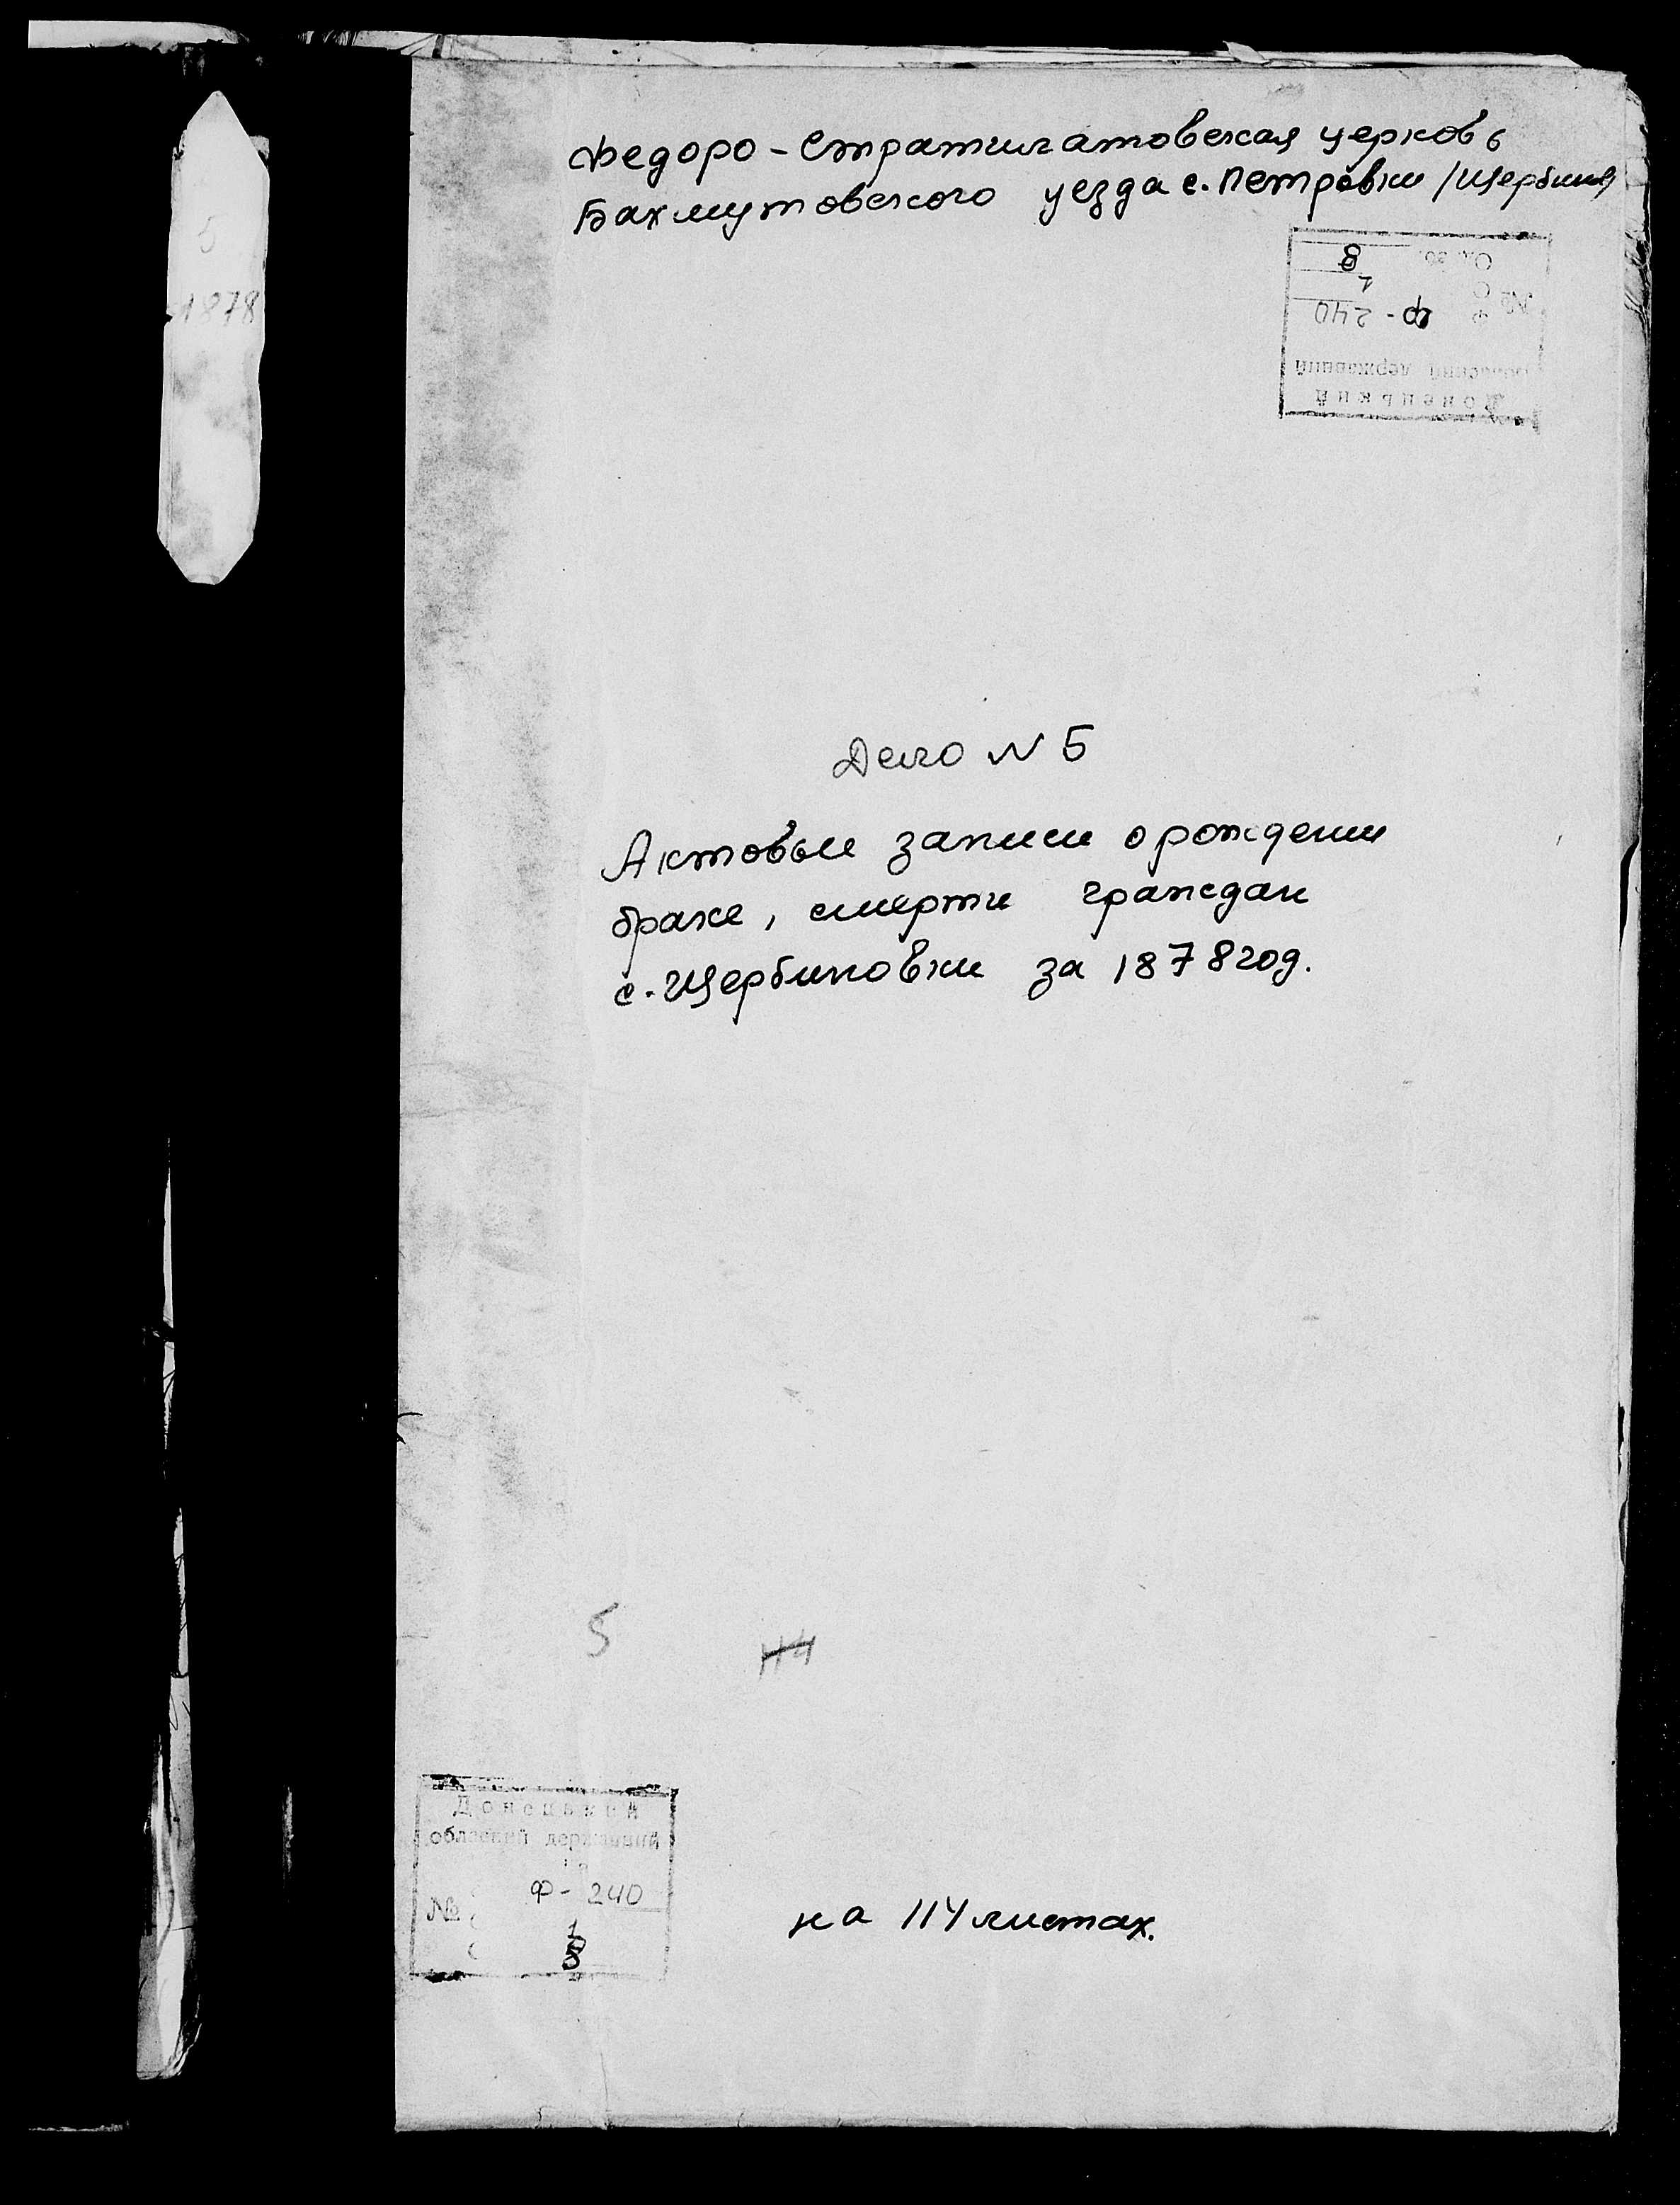 Федоро-Стратилатовская церковь
Бахмутовского уезда с. Петровки /Щербин
5
1878
Ф-240
1
8
Донецький
обласний державний
Дело N 5
Актовые записи о рождении
браке, смерти граждан
с. Щербиновки за 1878 год.
5
114
Донецький
обласний державний
№
Ф-240
1
на 114 листах.